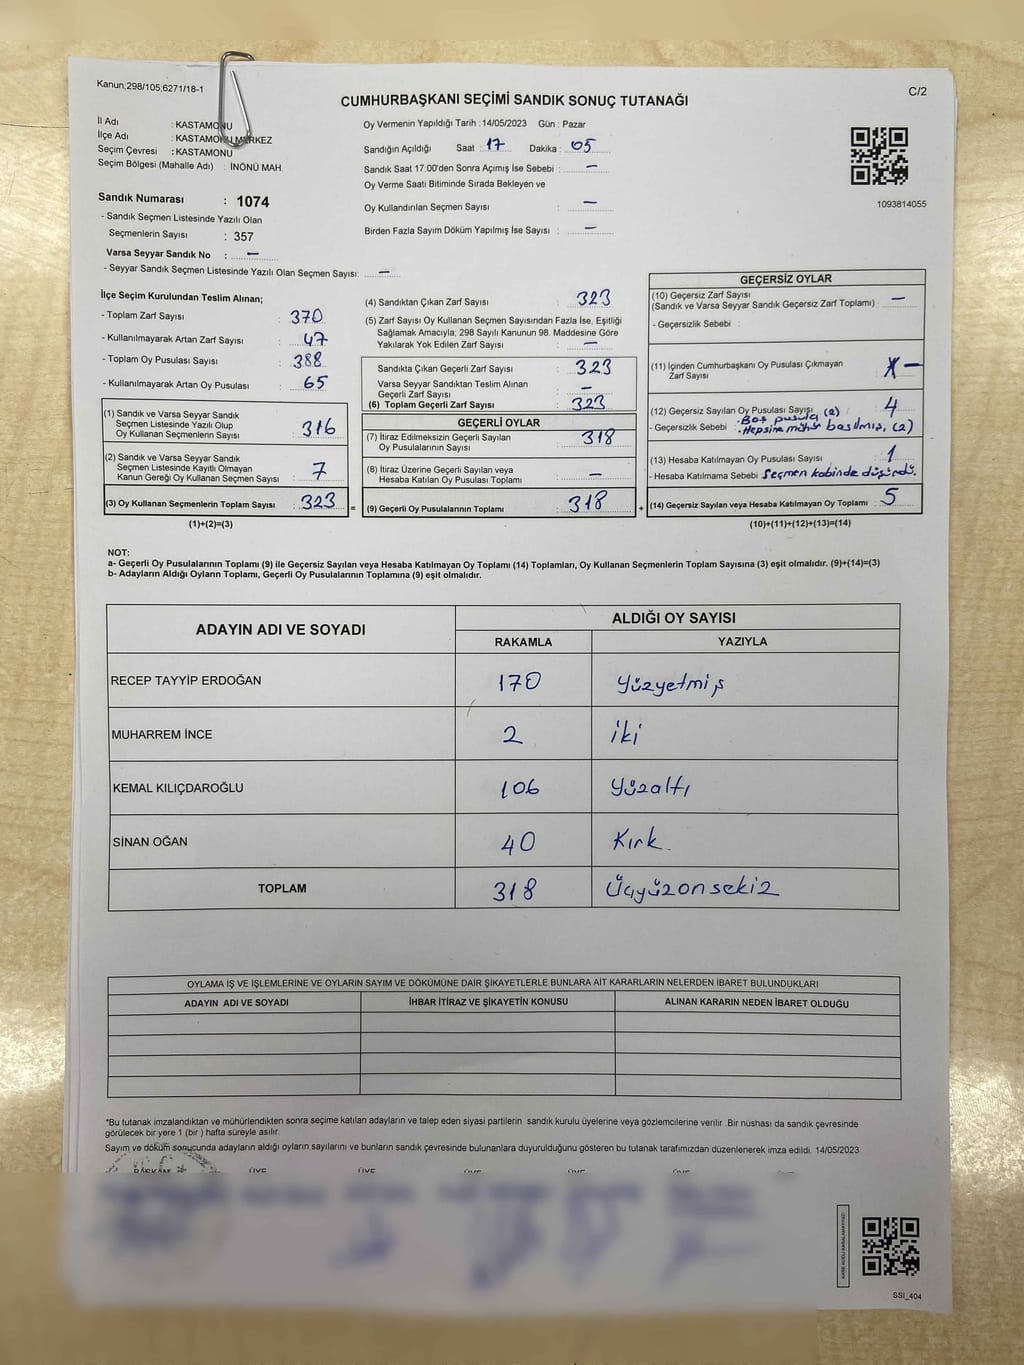 Kanun;298/105;6271/18-1
C/2
CUMHURBAŞKANI SEÇİMİ SANDIK SONUÇ TUTANAĞI
İl Adı : KASTAMONU
İlçe Adı : KASTAMONU MERKEZ
Seçim Çevresi : KASTAMONU
Seçim Bölgesi (Mahalle Adı) : İNÖNÜ MAH.
Oy Vermenin Yapıldığı Tarih : 14/05/2023 Gün : Pazar
Sandığın Açıldığı Saat : 17 Dakika : 05
Sandık Saat 17:00'den Sonra Açımış İse Sebebi : –
Oy Verme Saati Bitiminde Sırada Bekleyen ve
Oy Kullandırılan Seçmen Sayısı : –
Birden Fazla Sayım Döküm Yapılmış İse Sayısı : –
1093814055
Sandık Numarası : 1074
- Sandık Seçmen Listesinde Yazılı Olan
Seçmenlerin Sayısı : 357
Varsa Seyyar Sandık No : –
- Seyyar Sandık Seçmen Listesinde Yazılı Olan Seçmen Sayısı: –
İlçe Seçim Kurulundan Teslim Alınan;
- Toplam Zarf Sayısı : 370
- Kullanılmayarak Artan Zarf Sayısı : 47
- Toplam Oy Pusulası Sayısı : 388
- Kullanılmayarak Artan Oy Pusulası : 65
(1) Sandık ve Varsa Seyyar Sandık
Seçmen Listesinde Yazılı Olup
Oy Kullanan Seçmenlerin Sayısı : 316
(2) Sandık ve Varsa Seyyar Sandık
Seçmen Listesinde Kayıtlı Olmayan
Kanun Gereği Oy Kullanan Seçmen Sayısı : 7
(3) Oy Kullanan Seçmenlerin Toplam Sayısı : 323
(1)+(2)=(3)
(4) Sandıktan Çıkan Zarf Sayısı : 323
(5) Zarf Sayısı Oy Kullanan Seçmen Sayısından Fazla İse, Eşitliği
Sağlamak Amacıyla; 298 Sayılı Kanunun 98. Maddesine Göre
Yakılarak Yok Edilen Zarf Sayısı : –
Sandıkta Çıkan Geçerli Zarf Sayısı : 323
Varsa Seyyar Sandıktan Teslim Alınan
Geçerli Zarf Sayısı : –
(6) Toplam Geçerli Zarf Sayısı : 323
GEÇERLİ OYLAR
(7) İtiraz Edilmeksizin Geçerli Sayılan
Oy Pusulalarının Sayısı : 318
(8) İtiraz Üzerine Geçerli Sayılan veya
Hesaba Katılan Oy Pusulası Toplamı : –
= (9) Geçerli Oy Pusulalarının Toplamı : 318 +
GEÇERSİZ OYLAR
(10) Geçersiz Zarf Sayısı
(Sandık ve Varsa Seyyar Sandık Geçersiz Zarf Toplamı) : –
- Geçersizlik Sebebi :
(11) İçinden Cumhurbaşkanı Oy Pusulası Çıkmayan
Zarf Sayısı : –
(12) Geçersiz Sayılan Oy Pusulası Sayısı : 4
- Geçersizlik Sebebi : • Boş pusula (2)
• Hepsine mühür basılmış, (2)
(13) Hesaba Katılmayan Oy Pusulası Sayısı : 1
- Hesaba Katılmama Sebebi Seçmen kabinde düşürdü.
(14) Geçersiz Sayılan veya Hesaba Katılmayan Oy Toplamı : 5
(10)+(11)+(12)+(13)=(14)
NOT:
a- Geçerli Oy Pusulalarının Toplamı (9) ile Geçersiz Sayılan veya Hesaba Katılmayan Oy Toplamı (14) Toplamları, Oy Kullanan Seçmenlerin Toplam Sayısına (3) eşit olmalıdır. (9)+(14)=(3)
b- Adayların Aldığı Oyların Toplamı, Geçerli Oy Pusulalarının Toplamına (9) eşit olmalıdır.
ADAYIN ADI VE SOYADI ALDIĞI OY SAYISI
RAKAMLA YAZIYLA
RECEP TAYYİP ERDOĞAN 170 yüzyetmiş
MUHARREM İNCE 2 iki
KEMAL KILIÇDAROĞLU 106 yüzaltı
SİNAN OĞAN 40 Kırk.
TOPLAM 318 Üçyüzonsekiz
OYLAMA İŞ VE İŞLEMLERİNE VE OYLARIN SAYIM VE DÖKÜMÜNE DAİR ŞİKAYETLERLE BUNLARA AİT KARARLARIN NELERDEN İBARET BULUNDUKLARI
ADAYIN ADI VE SOYADI İHBAR İTİRAZ VE ŞİKAYETİN KONUSU ALINAN KARARIN NEDEN İBARET OLDUĞU
*Bu tutanak imzalandıktan ve mühürlendikten sonra seçime katılan adayların ve talep eden siyasi partilerin sandık kurulu üyelerine veya gözlemcilerine verilir. Bir nüshası da sandık çevresinde
görülecek bir yere 1 (bir ) hafta süreyle asılır.
Sayım ve döküm sonucunda adayların aldığı oyların sayılarını ve bunların sandık çevresinde bulunanlara duyurulduğunu gösteren bu tutanak tarafımızdan düzenlenerek imza edildi. 14/05/2023
BAŞKAN ÜYE ÜYE ÜYE ÜYE ÜYE
SSI_404